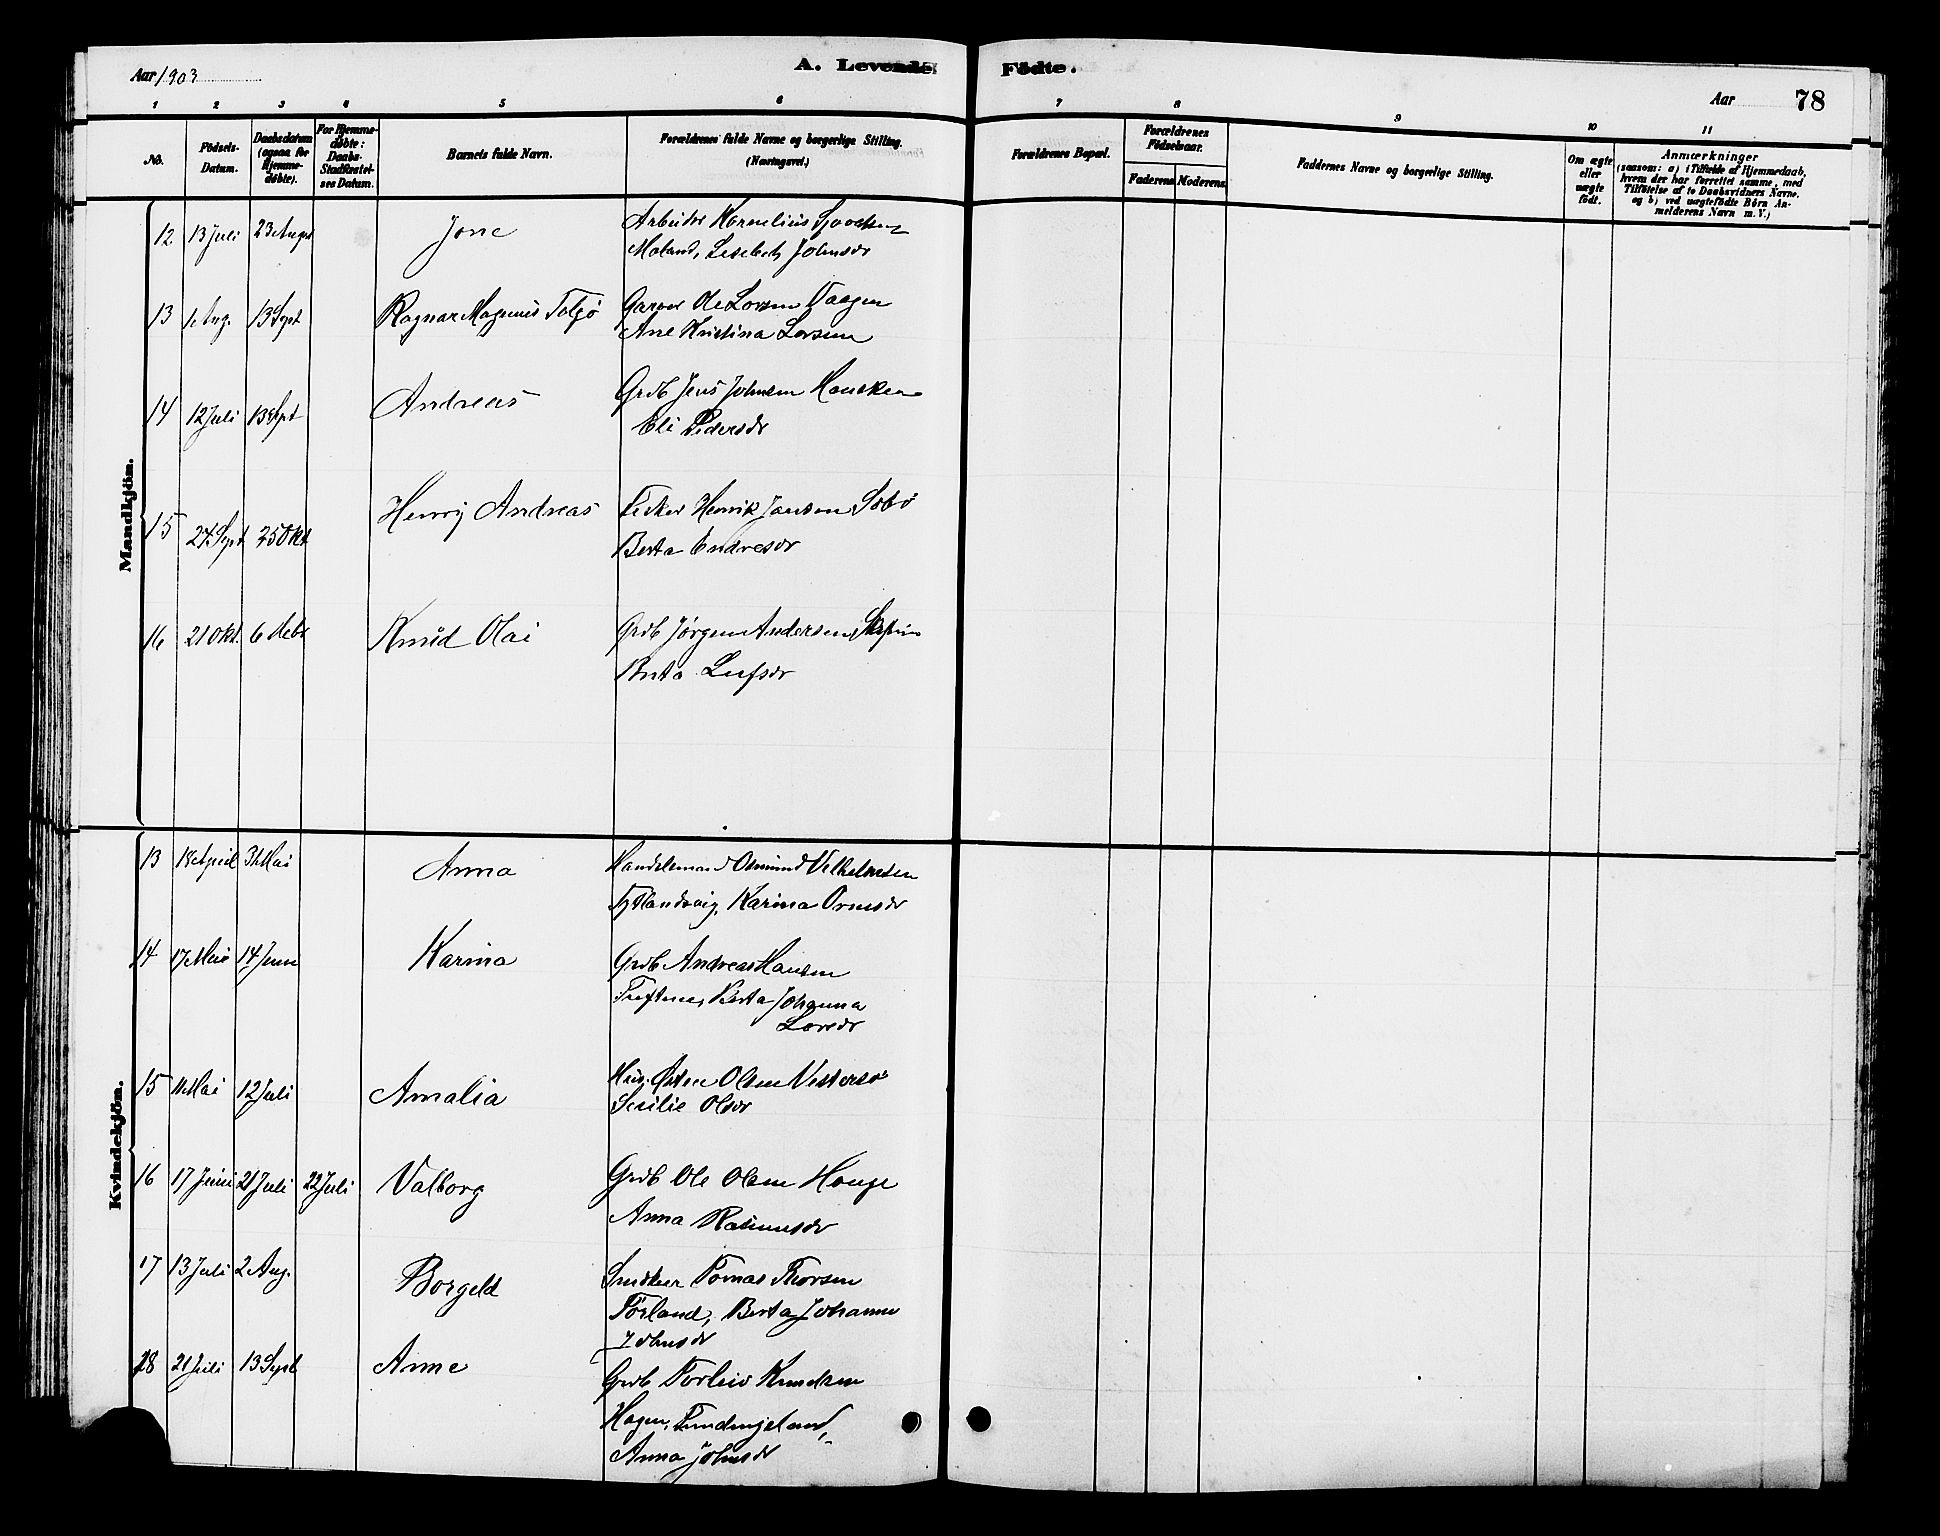 Aar 1903
A. Levende Fødte.
Aar 78
1 2 3 4 5 6 7 8 9 10 11
No.
Fødsels-Datum.
Daabsdatum (ogsaa for Hjemmedøbte).
For Hjemmedøbte: Daabs-Stadfæstelses Datum.
Barnets fulde Navn.
Forældrenes fulde Navne og borgerlige Stilling. (Næringsvei.)
Forældrenes Bopæl.
Forældrenes Fødselsaar.
Faderens Moderens
Faddernes Navne og borgerlige Stilling.
Om ægte eller uægte født.
Anmærkninger
(saasom: a) i Tilfælde af Hjemmedaab, hvem der har forrettet samme, med Tilføielse af to Daabsvidners Navne, og b) ved uægtefødte Børn Anmelderens Navn m. V.)
Mandkjøn.
12 13 Juli 23 August Jone Arbeider Kornelius
Moland, Lisebet Johnsdr
13 1 Aug. 13 Sept Ragnar Magnus Talgø Garver Ole Larsen Vaagen
Ane Kristina Larsen
14 12 Juli 13 Sept Andreas Grdb Jens Johnsen Hausken
Eli Pedersdr
15 27 Sept 25 Okt Henrij Andreas Fisker Henrik Jansen Sebø
Berta Endresdr
16 21 Okt. 6 Debr Knud Olai Grdb Jørgen Andersen
Berta Leifsdr
Kvindekjøn.
13 18 April 31 Mai Anna Handelsmand Osmund Vilhelmsen
Karina Ormsdr
14 17 Mai 14 Juni Karina Grdb Andreas Hansen
Berta Johanna
Larsdr
15 11 Mai 12 Juli Amalia Hus. Østen Olsen Vestersø
Sesilie Olsdr
16 17 Juni 21 Juli 22 Juli Valborg Grdb Ole Olsen Hauge
Anna Rasmusdr
17 13 Juli 2 Aug. Borgeld Snedker Tomas Thorsen
Førland, Berta Johanne
Johnsdr
18 21 Juli 13 Sept Anne Grdb Torleiv Knudsen
Hagen,
Anna Johnsdr